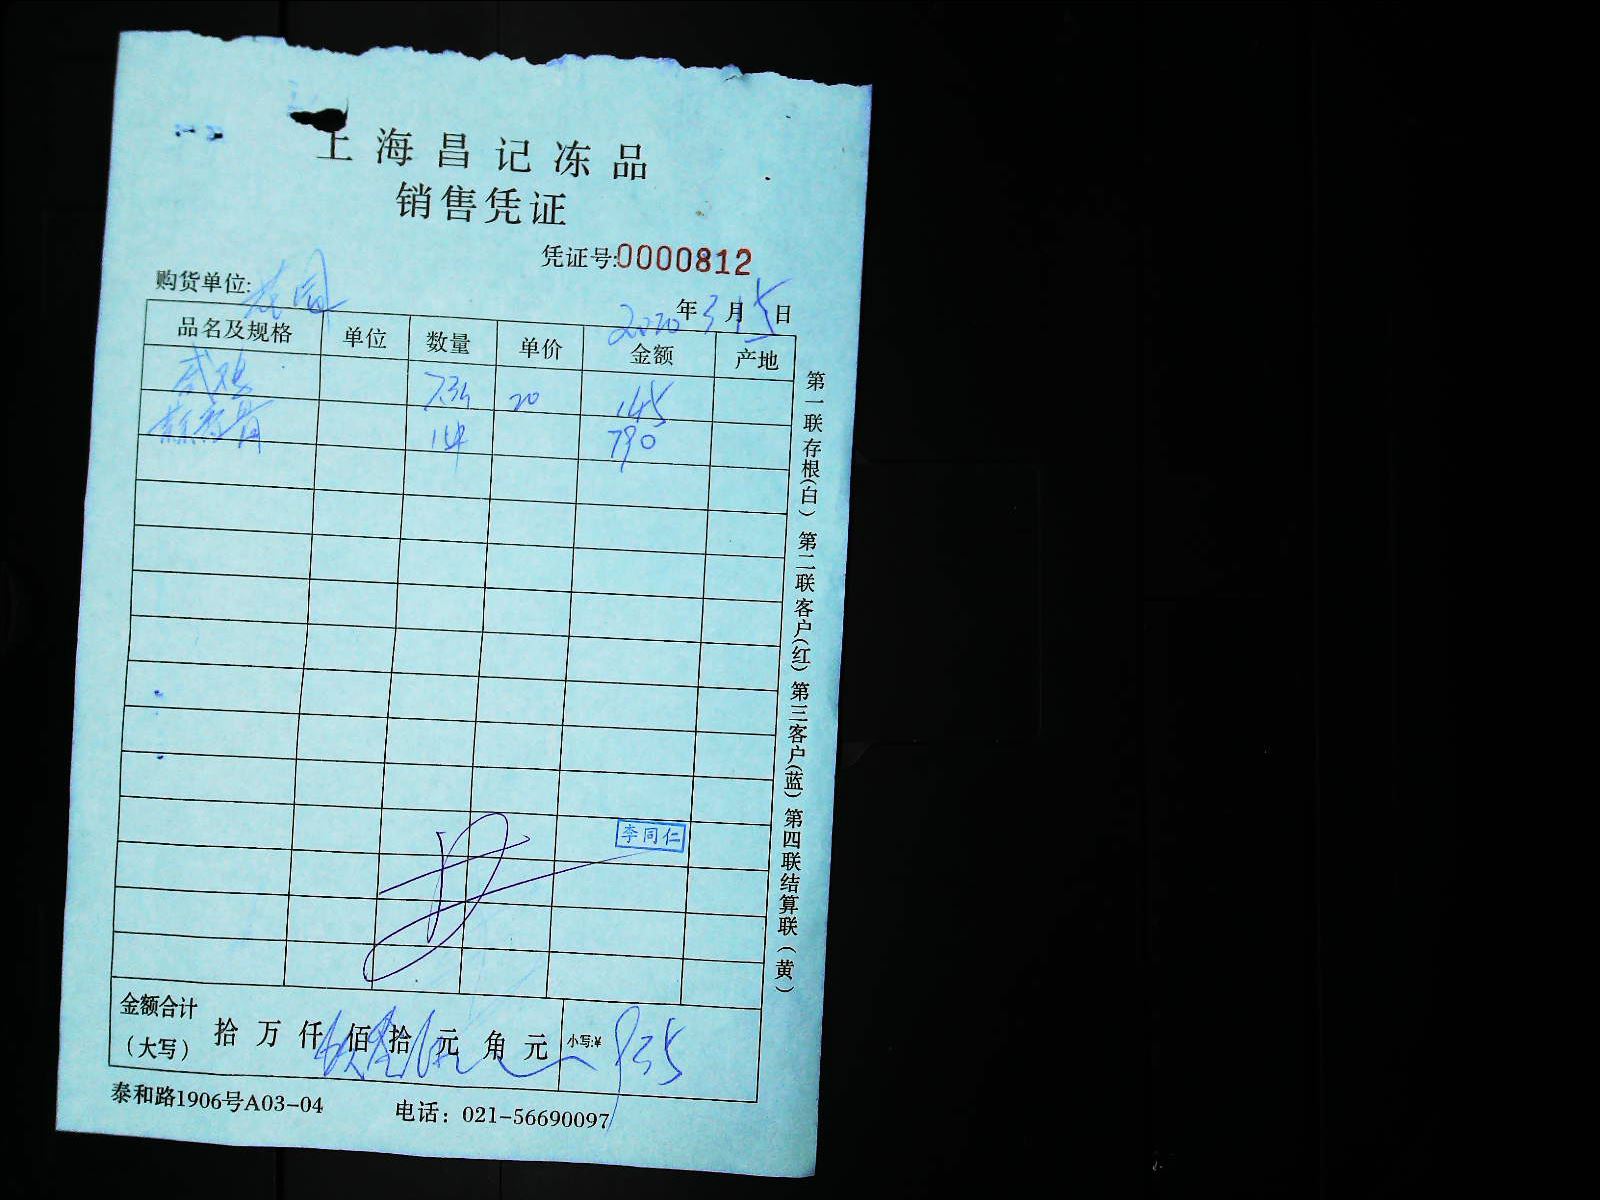 上海昌记冻品
销售凭证
凭证号:0000812
购货单位:
2020年3月15日
品名及规格 单位 数量 单价 金额 产地
咸鸡 20 145
790
李同仁
金额合计(大写) 拾 万 仟 佰 拾 元 角 元 小写:¥ 935
泰和路1906号A03-04 电话：021-56690097
第一联存根(白) 第二联客户(红) 第三客户(蓝) 第四联结算联(黄)